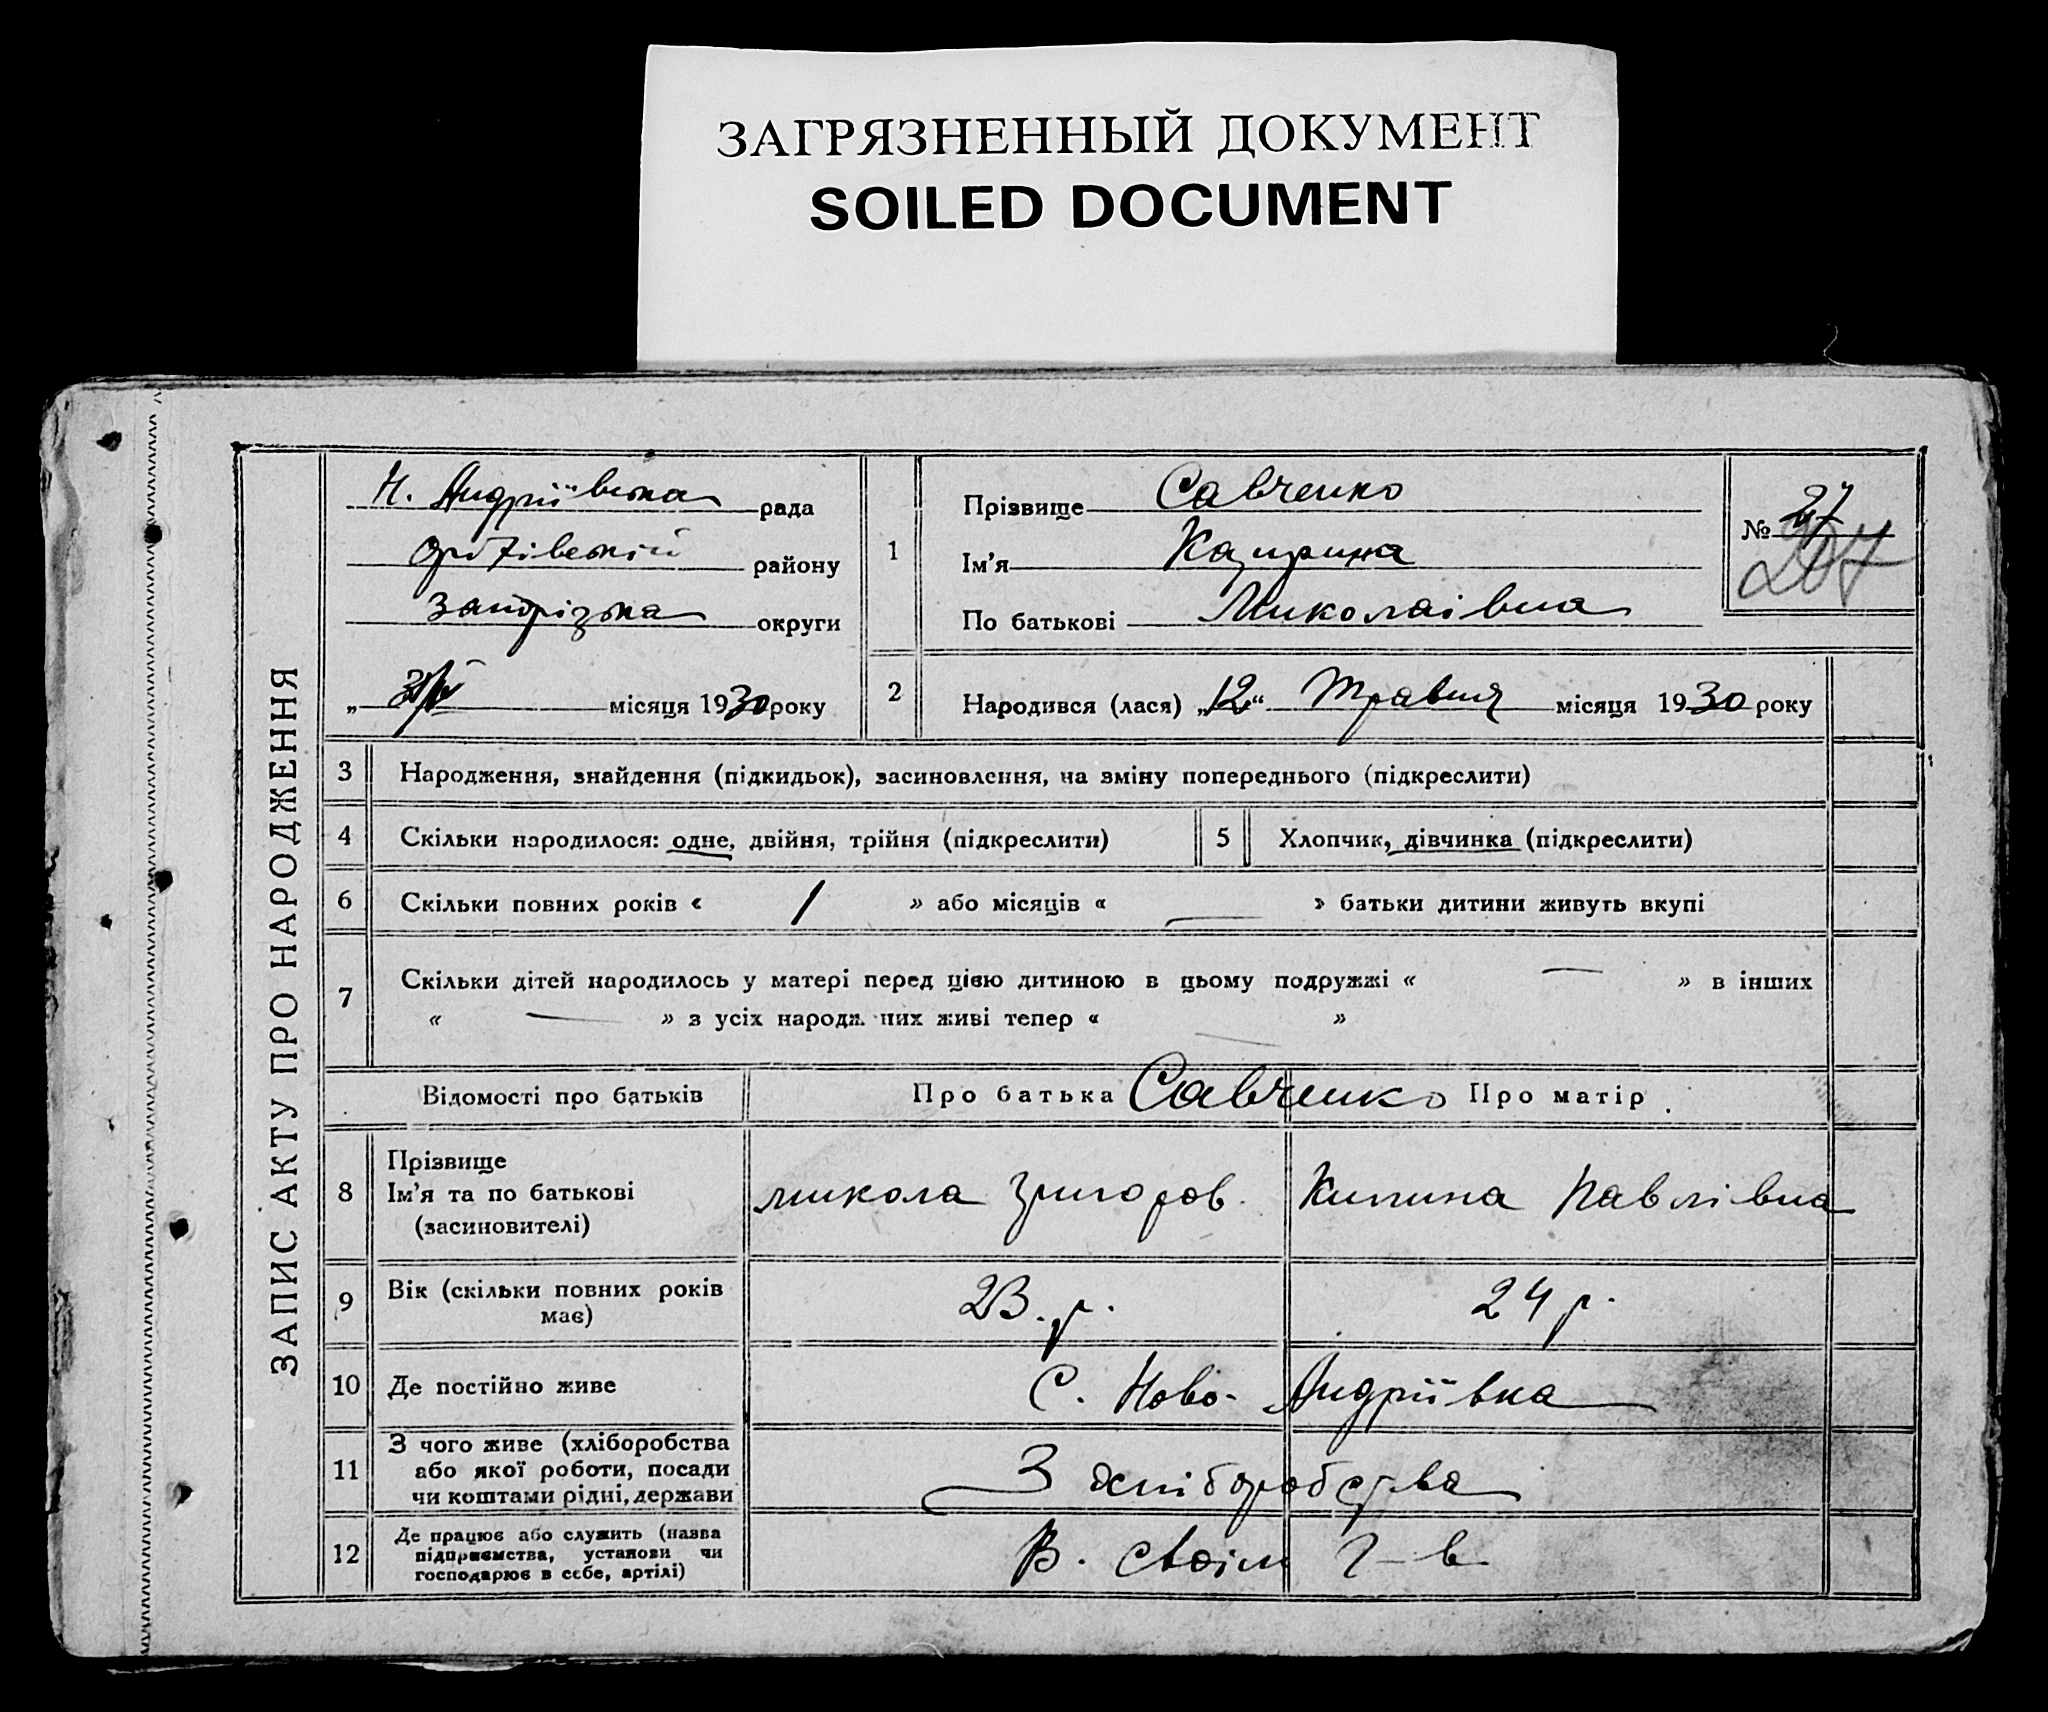 ЗАГРЯЗНЕННЫЙ ДОКУМЕНТ
SOILED DOCUMENT
ЗАПИС АКТУ ПРО НАРОДЖЕННЯ
Н. Андріївська рада
району
Запорізька округи
„ місяця 1930 року
1
Прізвище Савченко
Ім'я Катирина
По батькові Миколаівна
№ 27
207
2
Народився (лася) „12“ Травня місяця 1930 року
3 Народження, знайдення (підкидьок), засиновлення, на зміну попереднього (підкреслити)
4 Скільки народилося: одне, двійня, трійня (підкреслити) 5 Хлопчик, дівчинка (підкреслити)
6 Скільки повних років « 1 » або місяців « — » батьки дитини живуть вкупі
7 Скільки дітей народилось у матері перед цією дитиною в цьому подружжі « — » в інших
« — » з усіх народж них живі тепер « — »
Відомості про батьків Про батька Савченко Про матір
8 Прізвище
Ім'я та по батькові
(засиновителі)
микола Григоров. Килина Павлівна
9 Вік (скільки повних років
має)
23. р. 24 р.
10 Де постійно живе С. Ново-Андріївка
11 З чого живе (хліборобства
або якої роботи, посади
чи коштами рідні, держави
З хліборобства
12 Де працює або служить (назва
підприємства, установи чи
господарює в себе, артілі)
В. своім г-в